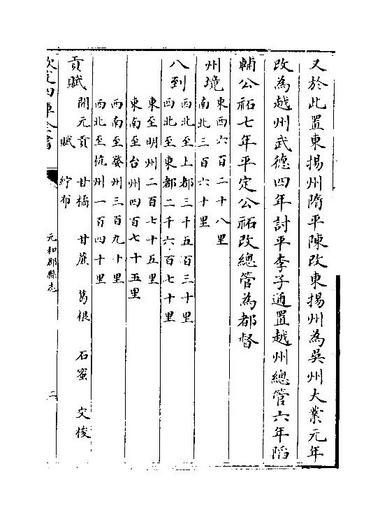 又於此置東揚州隋平陳改東揚州為吳州大業元年
改為越州武德四年討平李子通置越州總管六年陷
輔公祏七年平定公祏改總管為都督
州境
東西六百二十八里
南北三百六十里
八到
西北至上都三千五百三十里
西北至東都二千六百七十里
東至明州二百七十五里
東南至台州四百七十五里
西南至婺州三百九十里
西北至杭州一百四十里
貢賦
開元貢 甘橘 甘蔗 葛根 石蜜 交梭
賦 紵布
欽定四庫全書
元和郡縣志
二